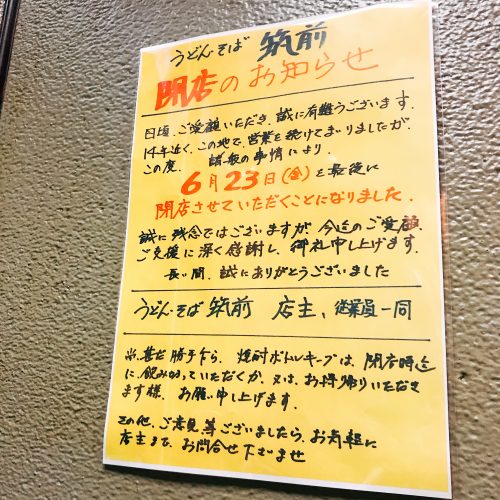 うどん・そば 筑前
閉店のお知らせ
日頃、ご愛顧いただき、誠に有難うございます。
14年近く、この地で、営業を続けてまいりましたが、
この度、 諸般の事情により、
6月23日(金)を最後に
閉店させていただくことになりました。
誠に残念ではございますが、今迄のご愛顧、
ご支援に深く感謝し、御礼申し上げます。
長い間、誠にありがとうございました
うどん・そば 筑前 店主、従業員一同
尚、甚だ勝手乍ら、焼酎ボトルキープは、閉店時迄
に、飲み切っていただくか、又は、お持帰りいただき
ます様、お願い申し上げます。
その他、ご意見等ございましたら、お気軽に
店主まで、お問合せ下さいませ